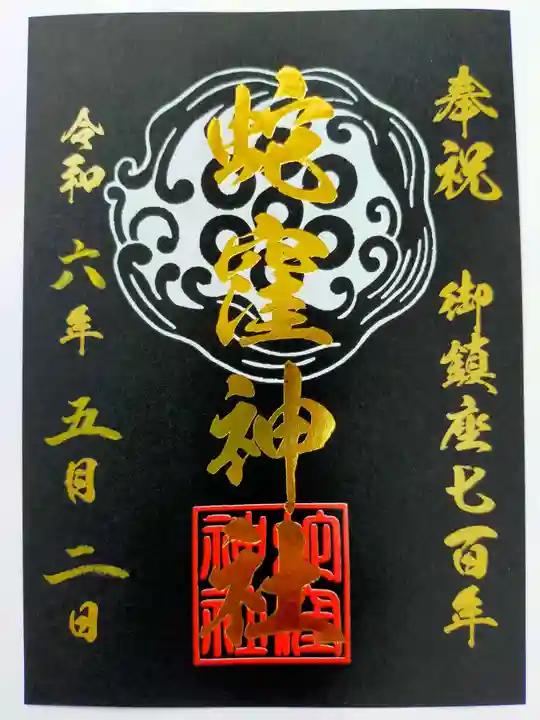 奉祝 御鎮座七百年
蛇窪神社
蛇窪
神社
令和六年五月二日